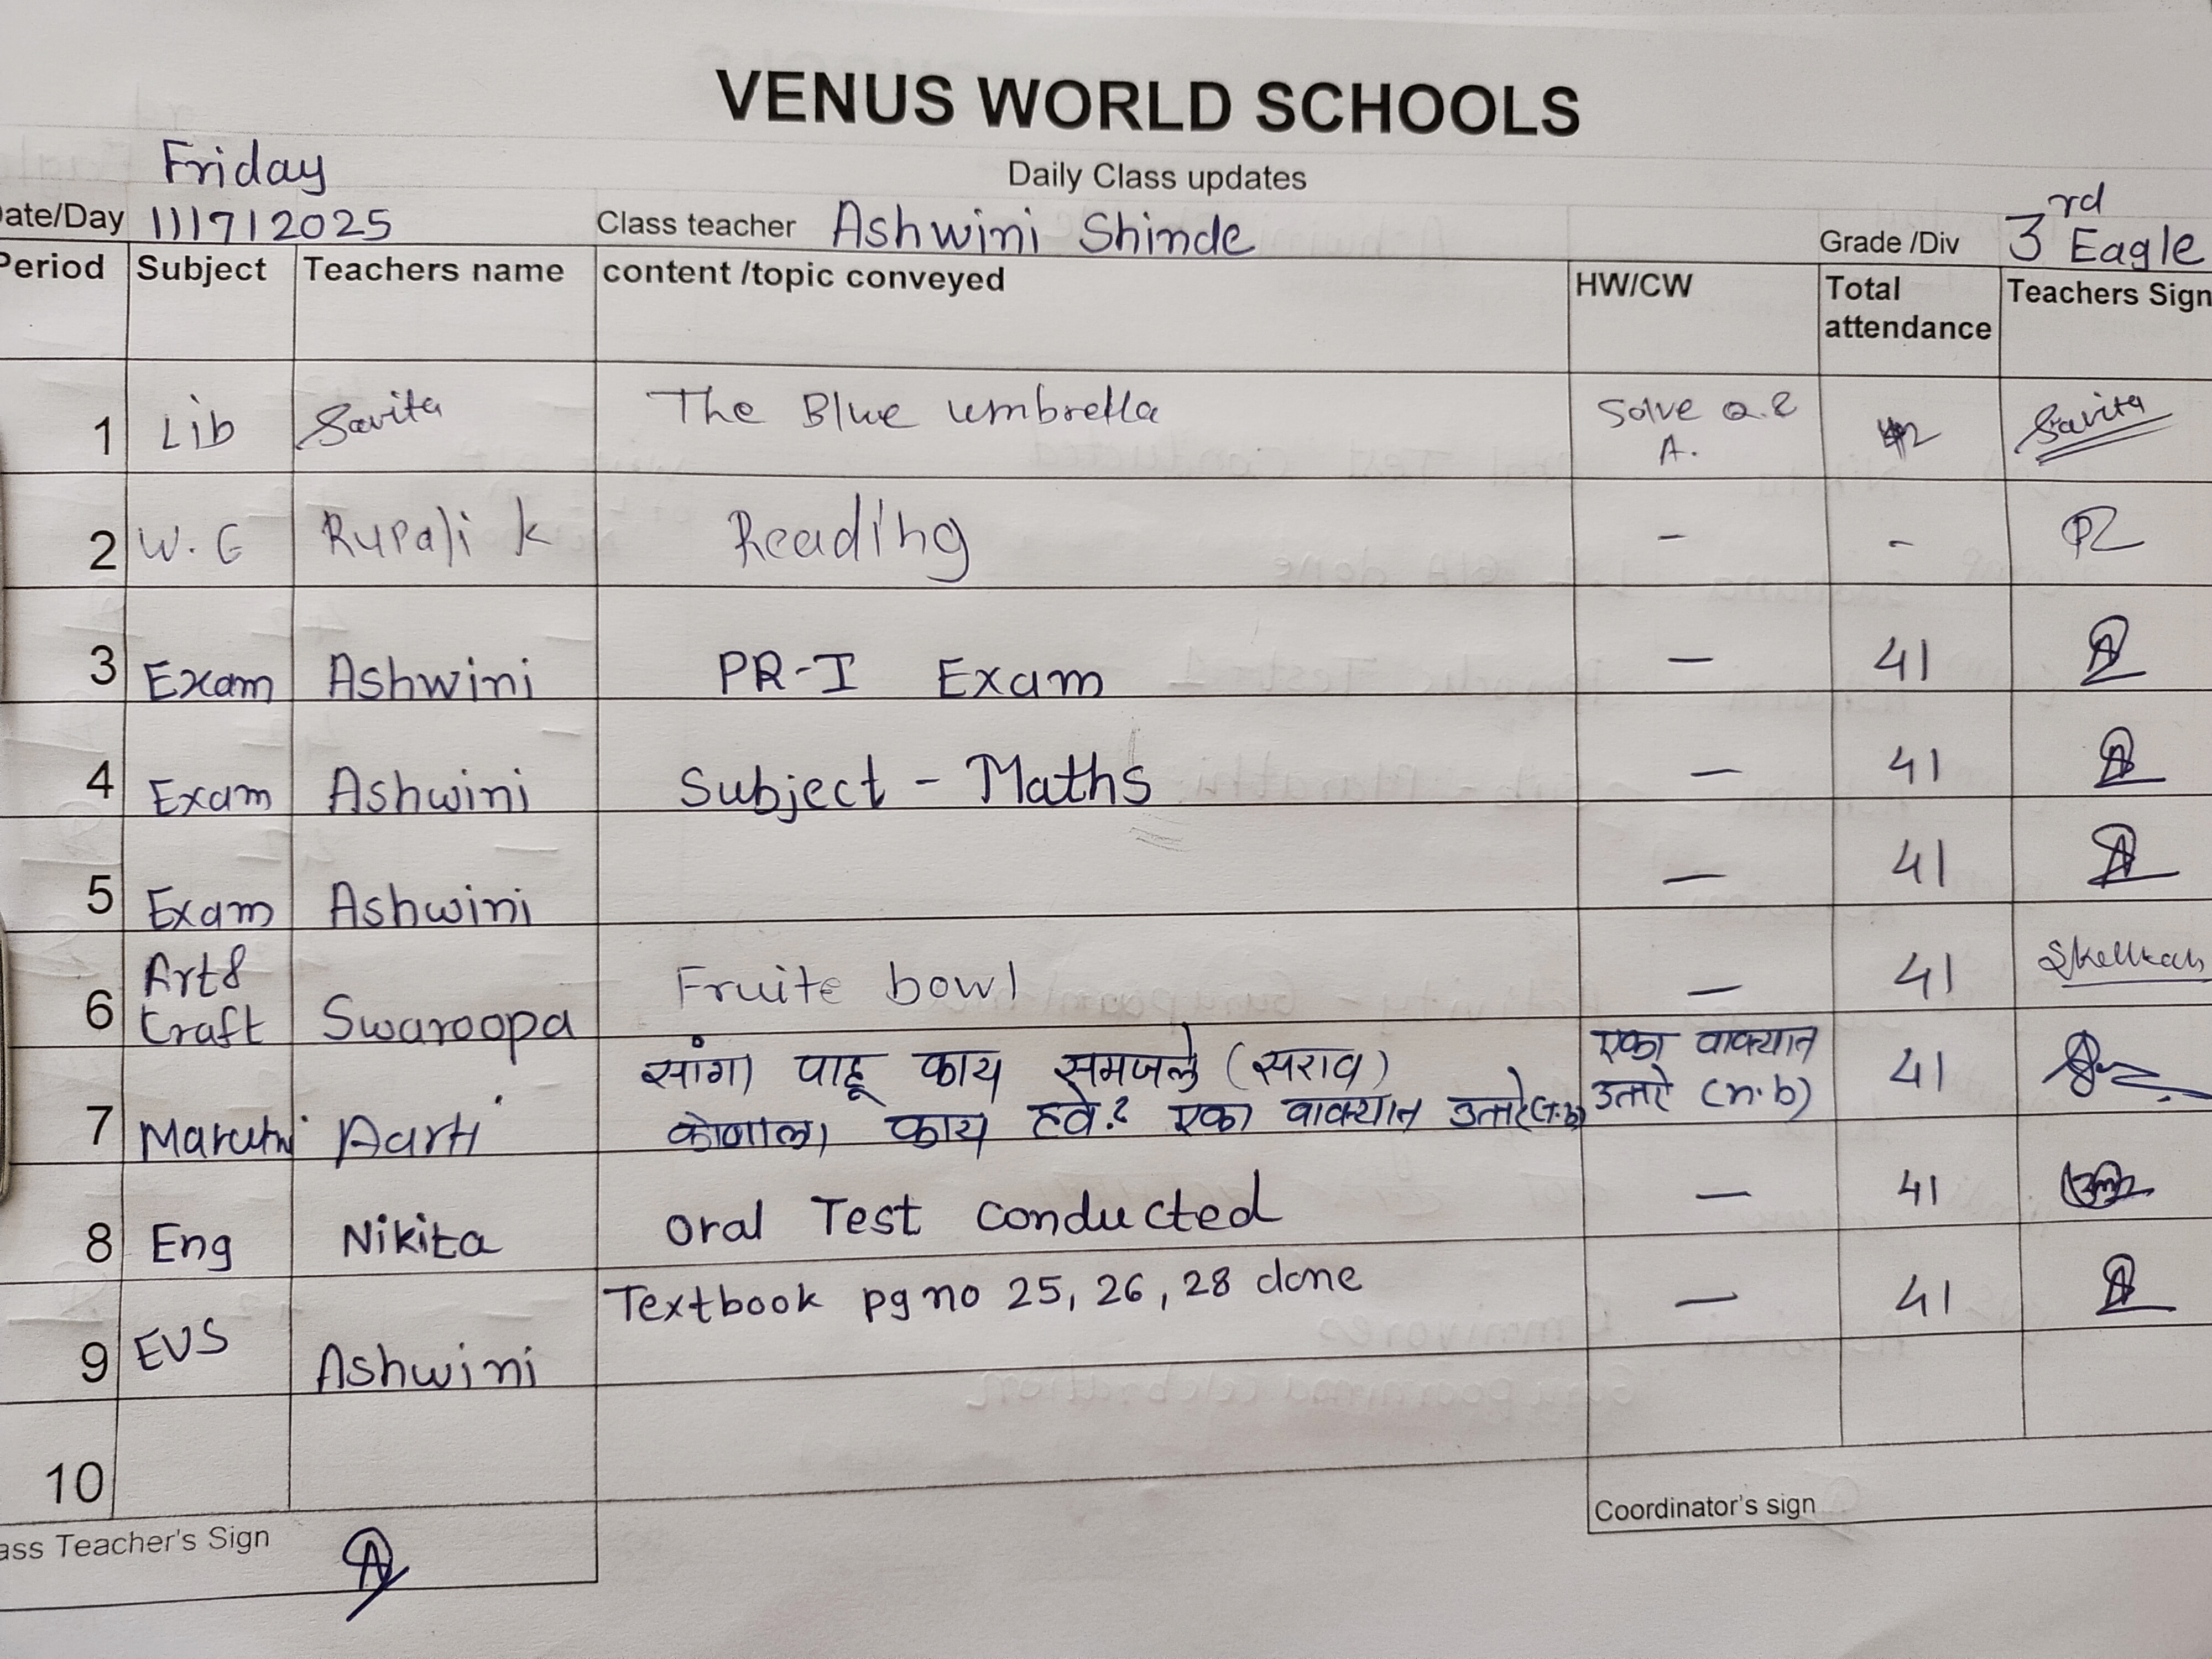 VENUS WORLD SCHOOLS
Daily Class updates
Friday
ate/Day 11/7/2025 Class teacher Ashwini Shinde Grade /Div 3rd Eagle
Period Subject Teachers name content /topic conveyed HW/CW Total attendance Teachers Sign
1 Lib Savita The Blue umbrella Solve Q.2 A. 42 Savita
2 W.E Rupali K Reading - -
3 Exam Ashwini PR-I Exam — 41
4 Exam Ashwini Subject - Maths — 41
5 Exam Ashwini — 41
6 Art & Craft Swaroopa Fruite bowl — 41
7 Marathi Aarti सांगा पाहू काय समजले (सराव) एका वाक्यात 41
कोणाला काय हवे? एका वाक्यात उत्तरे (n.b) उत्तरे (n.b)
8 Eng Nikita Oral Test conducted — 41
9 EVS Ashwini Textbook pg no 25, 26, 28 done — 41
10
ass Teacher's Sign
Coordinator's sign